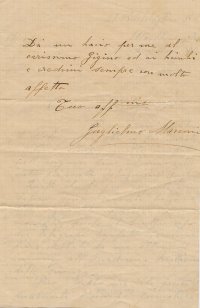 Dà un bacio per me al
carissimo Gigino ed ai bimbi
e credimi sempre con molto
affetto
Tuo aff mo
Guglielmo Marconi